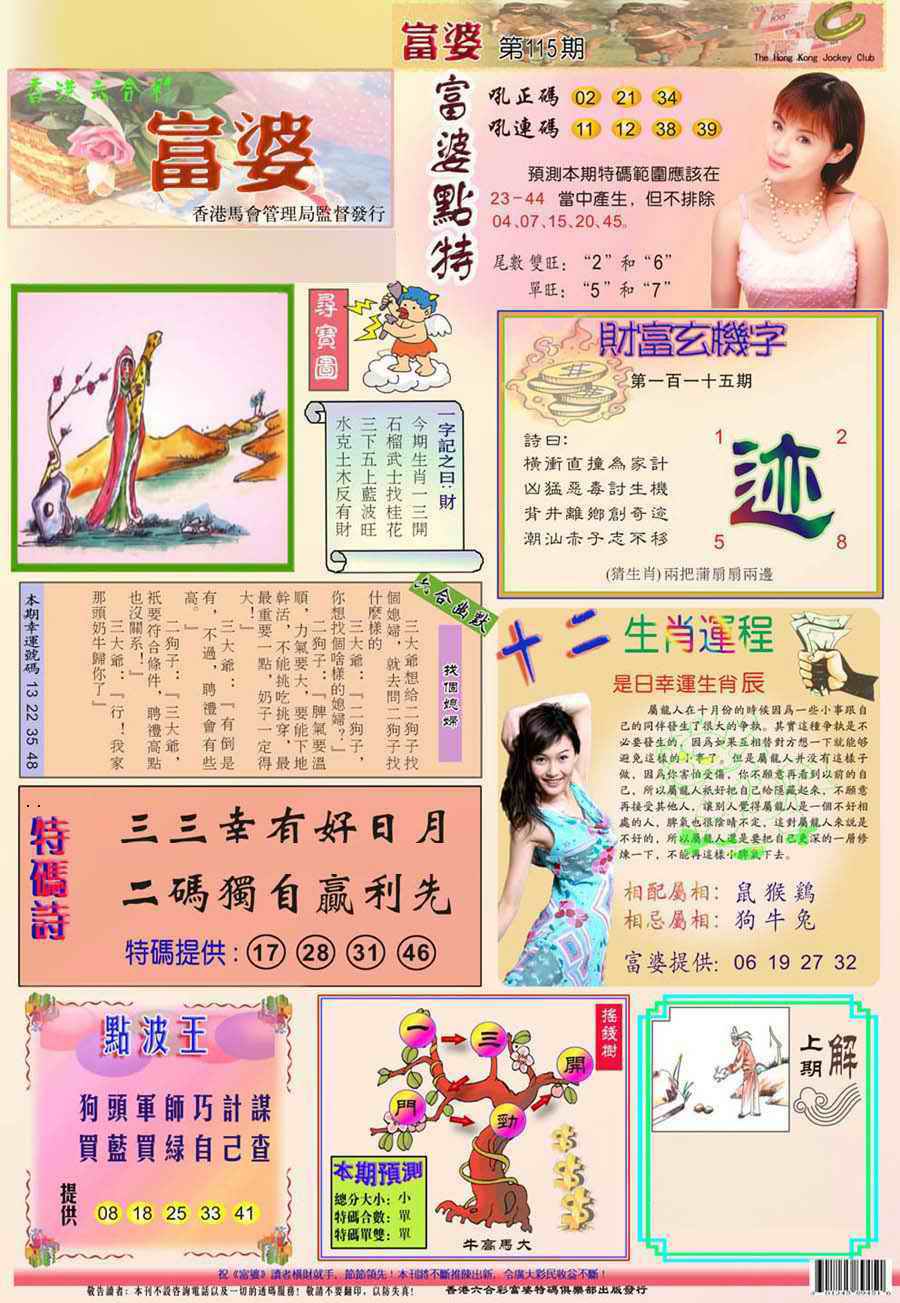 富婆 第115期
The Hong Kong Jockey Club
香港六合彩
富婆
香港馬會管理局監督發行
富婆點特
吼正碼 02 21 34
吼連碼 11 12 38 39
預測本期特碼範圍應該在
23-44 當中產生，但不排除
04、07、15、20、45。
尾數雙旺：“2”和“6”
單旺：“5”和“7”
尋寶圖
一字記之曰：財
今期生肖一三開
石榴武士找桂花
三下五上藍波旺
水克土木反有財
財富玄機字
第一百一十五期
詩曰：
橫衝直撞為家計
凶猛惡毒討生機
背井離鄉創奇迹
潮汕赤子志不移
1 2
迹
5 8
(猜生肖)兩把蒲扇扇兩邊
六合幽默
找個媳婦
三大爺想給二狗子找
個媳婦，就去問二狗子找
什麼樣的
三大爺：『二狗子，
你想找個啥樣的媳婦？』
二狗子：『脾氣要溫
順，力氣要大，要能下地
幹活，不能挑吃挑穿，最
最重要一點，奶子一定得
大！』
三大爺：『有倒是
有，不過，聘禮會有些
高。』
二狗子：『三大爺，
衹要符合條件，聘禮高點
也沒關系！』
三大爺：『行！我家
那頭奶牛歸你了』
本期幸運號碼 13 22 35 48
十二生肖運程
是日幸運生肖辰
屬龍人在十月份的時候因為一些小事跟自
己的同伴發生了很大的争執。其實這種争執是不
必要發生的，因為如果互相替對方想一下就能够
避免這樣的小事了。但是屬龍人并没有這樣子
做，因為你害怕受傷，你不願意再看到以前的自
己，所以屬龍人祇好把自己給隱藏起來，不願意
再接受其他人，讓别人覺得屬龍人是一個不好相
處的人，脾氣也很陰晴不定，這對屬龍人來説是
不好的，所以屬龍人還是要把自己更深的一層修
煉一下，不能再這樣小脾氣下去。
相配屬相：鼠猴鷄
相忌屬相：狗牛兔
富婆提供：06 19 27 32
特碼詩
三三幸有好日月
二碼獨自贏利先
特碼提供：17 28 31 46
點波王
狗頭軍師巧計謀
買藍買緑自己查
提供 08 18 25 33 41
搖錢樹
一 三 開
門 勁
本期預測
總分大小：小
特碼合數：單
特碼單雙：單
牛高馬大
上期解
祝《富婆》讀者橫財就手，節節領先！本刊將不斷推陳出新，令廣大彩民收益不斷！
敬告讀者：本刊不設咨詢電話以及一切的透碼服務！敬請不要翻印，以防失真！ 香港六合彩富婆特碼俱樂部出版發行